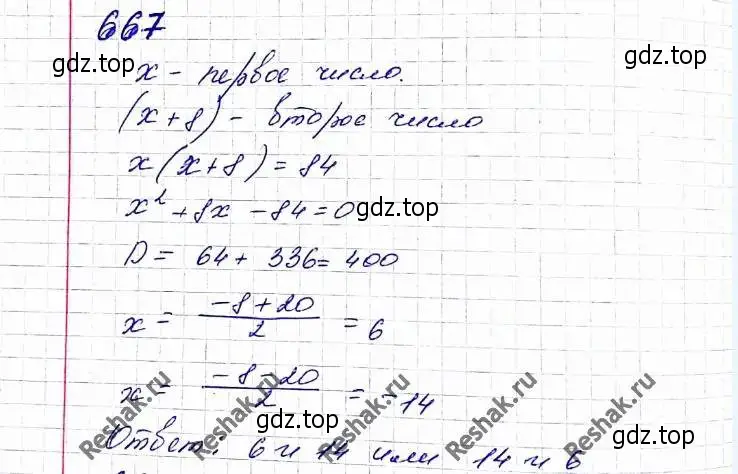 667
gdz.top
x - первое число.
gdz.top
(x+8) - второе число
x(x+8)=84
x²+8x-84=0
gdz.top
D = 64+336=400
x = \frac{-8+20}{2} = 6
x = \frac{-8-20}{2} = -14
Reshak.ru Reshak.ru Reshak.ru Reshak.ru
gdz.top
Ответ: 6 и 14 или 14 и 6